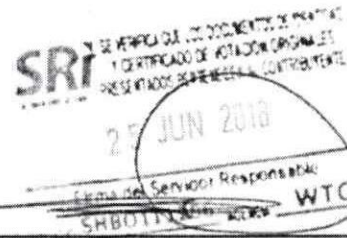 SRI SE VERIFICA QUE LOS DOCUMENTOS DE IDENTIDAD
Y CERTIFICADO DE VOTACIÓN ORIGINALES
PRESENTADOS PERTENECEN AL CONTRIBUYENTE
25 JUN 2018
Firma del Servidor Responsable
AGENCIA WTC